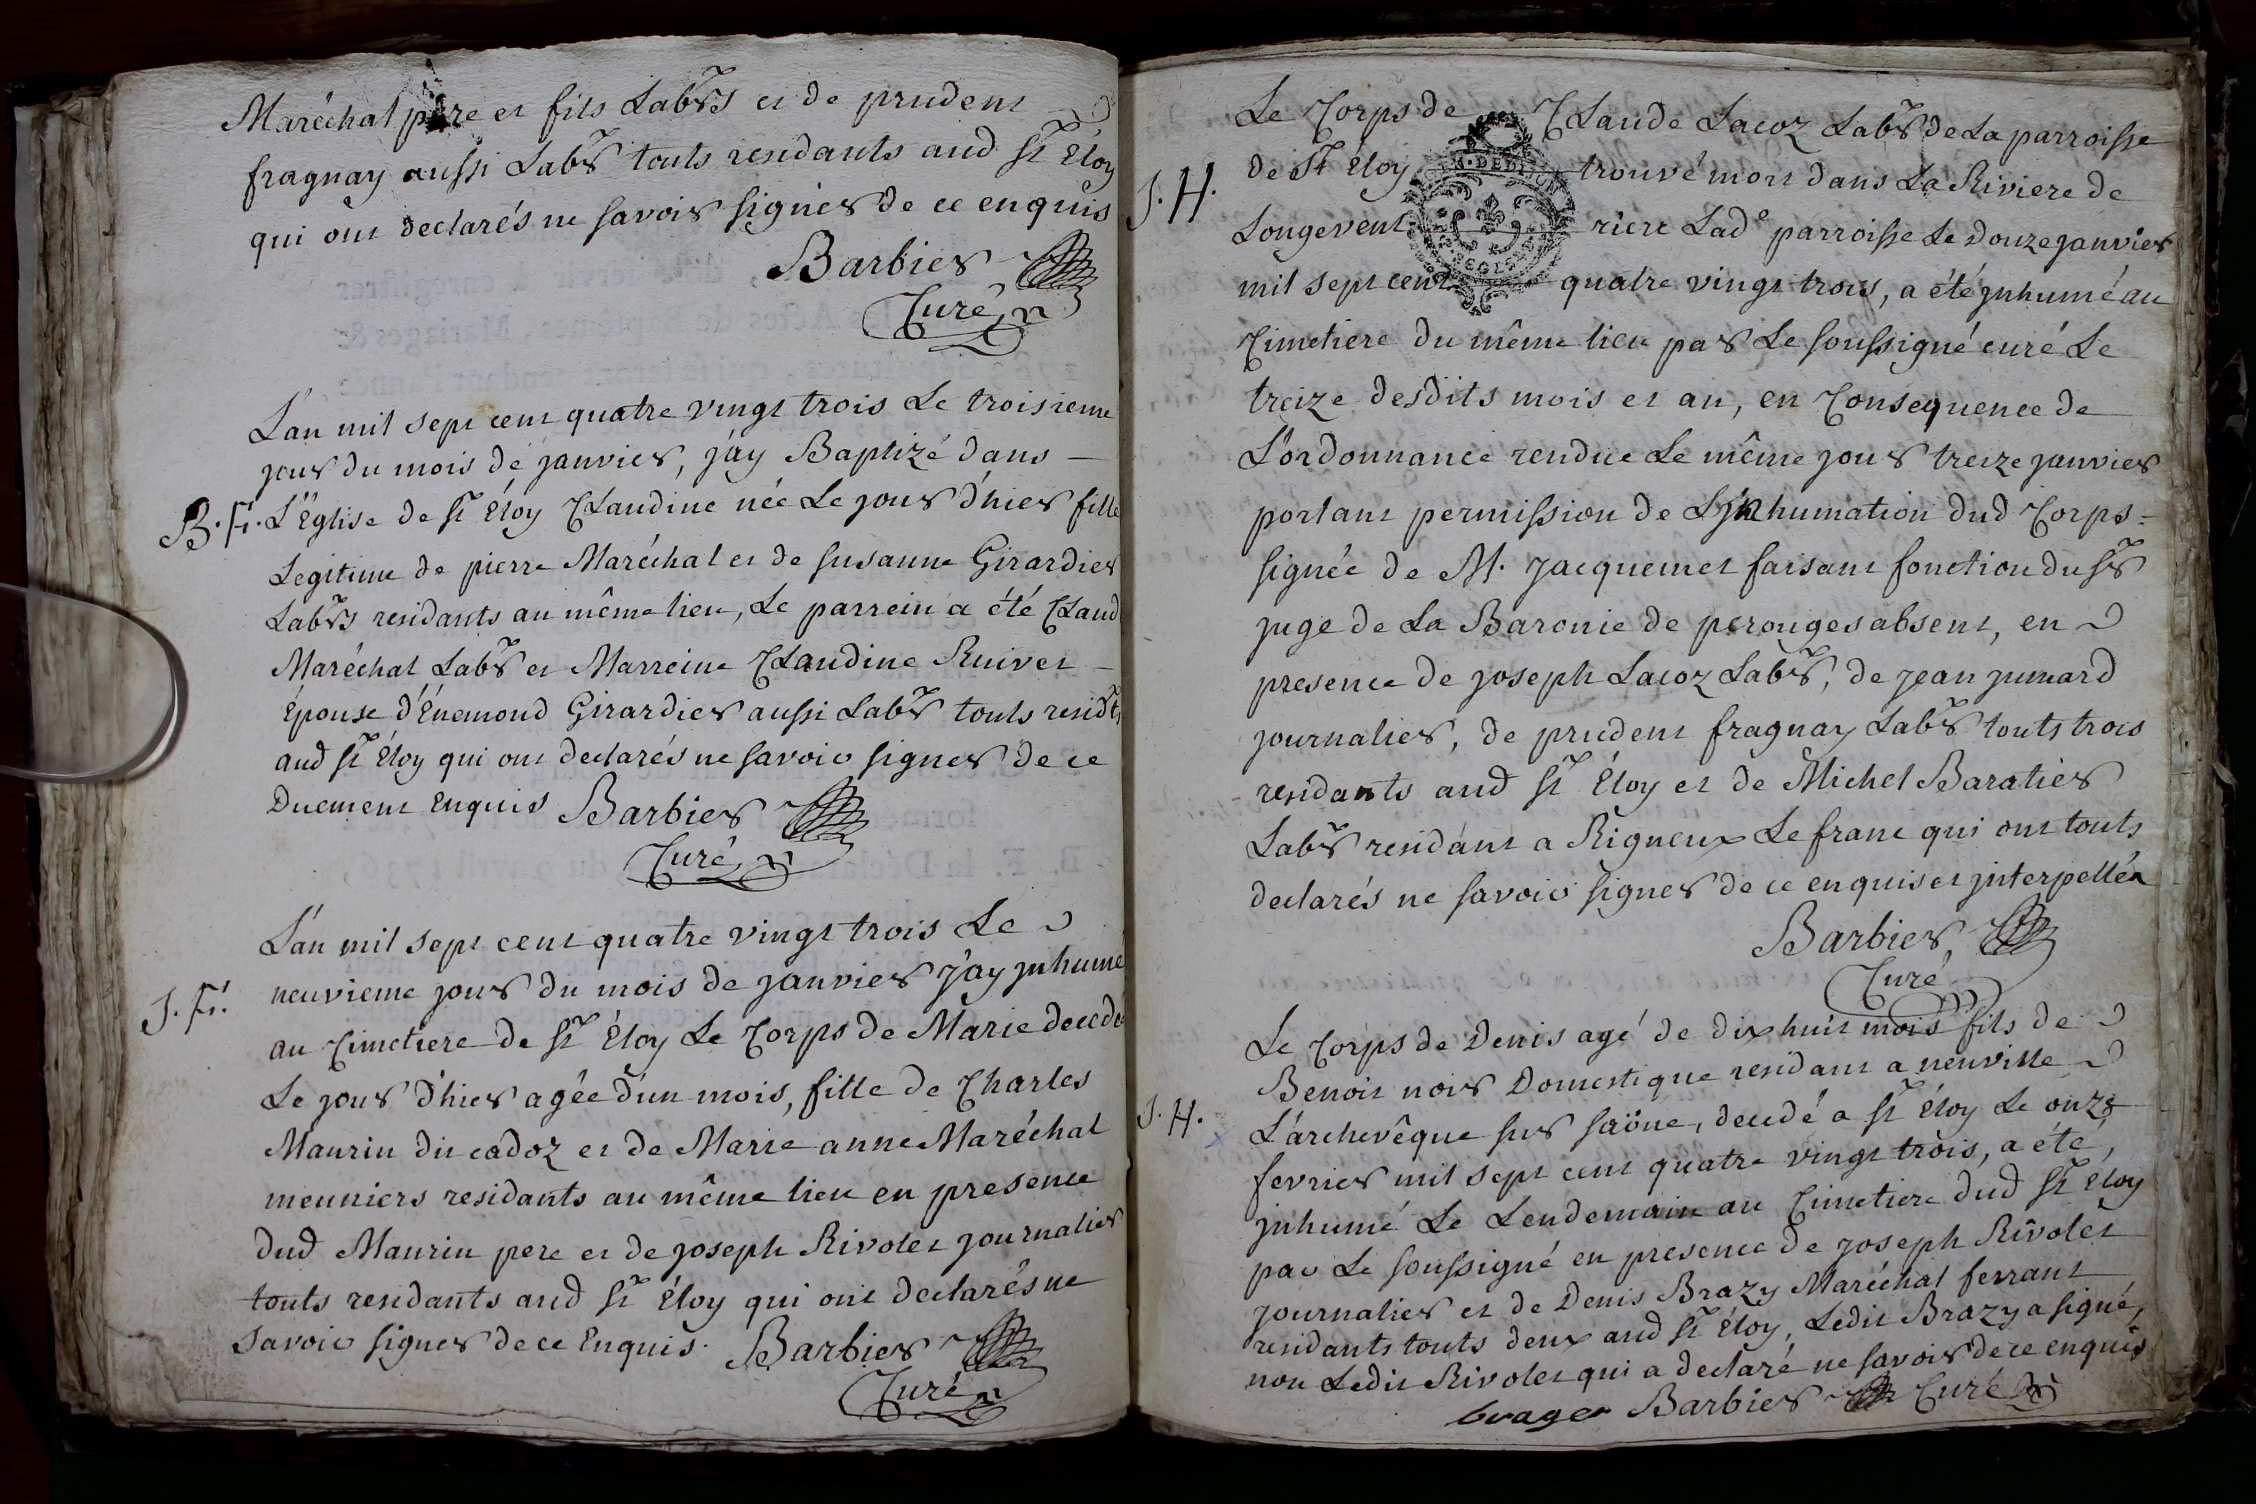 Maréchal père et fils Labrs et de prudent
fragnay aussi Labr touts residants aud St Éloy
qui ont declarés ne savoir signer de ce enquis
Barbier
Curé
L'an mil sept cent quatre vingt trois Le troisieme
jour du mois de janvier, j'ay Baptizé dans
B. F. L'Eglise de St Éloy Claudine née Le jour d'hier fille
Legitime de pierre Maréchal et de susanne Girardier
Labrs residants au même lieu, Le parrein a été Claud
Maréchal Labr et Marreine Claudine Ruivet
Épouse d'Énemond Girardier aussi Labr touts residts
aud St Éloy qui ont declarés ne savoir signer de ce
Duement Enquis Barbier
Curé
L'an mil sept cent quatre vingt trois Le
J. F. neuvieme jour du mois de janvier j'ay jnhumé
au Cimetiere de St Éloy Le Corps de Marie decedé
Le jour d'hier agée d'un mois, fille de Charles
Maurin dit cadoz et de Marie anne Maréchal
meuniers residants au même lieu en presence
dud Maurin pere et de joseph Rivolet journalier
touts residants aud St Éloy qui ont declarés ne
savoir signer de ce Enquis. Barbier
Curé
Le Corps de Claude Lacoz Labr de La parroisse
J. H. de St Éloy trouvé mort dans La Riviere de
Longevent riere Lade parroisse Le Douze janvier
mil sept cent quatre vingt trois, a été jnhumé au
Cimetiere du même lieu par Le soussigné curé Le
treize desdits mois et an, en Consequence de
L'ordonnance rendue Le même jour treize janvier
portant permission de L'jnhumation dud Corps
signée de M. Jacquemet faisant fonction du Sr
juge de La Baronie de perouges absent, en
presence de joseph Lacoz Labr, de jean junard
journalier, de prudent fragnay Labr touts trois
residants aud St Éloy et de Michel Baratier
Labr residant a Rigneux Le franc qui ont touts
declarés ne savoir signer de ce enquis et jnterpellés
Barbier,
Curé
Le Corps de Denis agé de dix huit mois fils de
Benoit noir Domestique residant a neuville
J. H. L'archevêque sur saöne, decedé a St Éloy Le onze
fevrier mil sept cent quatre vingt trois, a été,
jnhumé Le Lendemain au Cimetiere dud St Éloy
par Le soussigné en presence de joseph Rivolet
journalier et de Denis Brazy Maréchal ferrant
residants touts deux aud St Éloy, Ledit Brazy a signé,
non Ledit Rivolet qui a declaré ne savoir de ce enquis
Barbier Curé